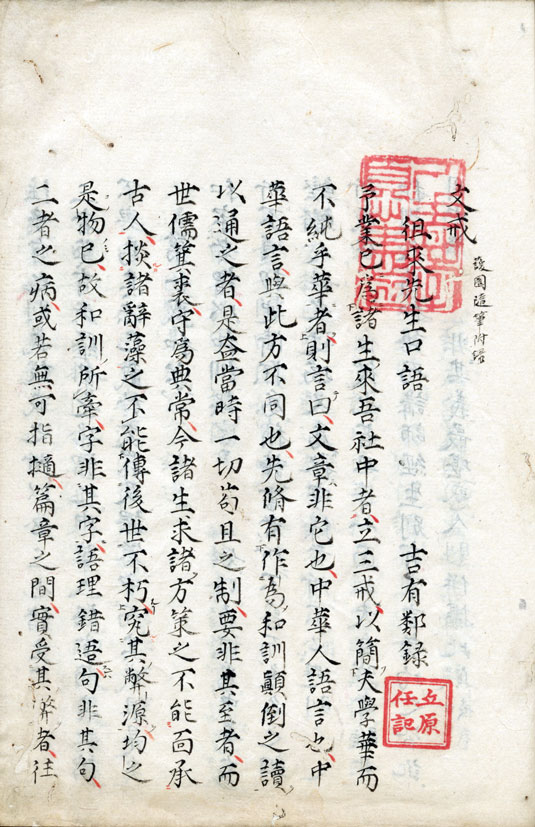 文戒 蘐園隨筆附錄
徂來先生口語 吉有鄰錄
予業已爲諸生來吾社中者立三戒以簡夫學華而
不純乎華者則言曰文章非它也中華人語言也中
華語言與此方不同也先脩有作爲和訓顚倒之讀
以通之者是盖當時一切苟且之制要非其至者而
世儒箕裘守爲典常今諸生求諸方策之不能面承
古人掞諸辭藻之不能傳後世不朽究其弊源均之
是物已故和訓所牽字非其字語理錯迕句非其句
二者之病或若無可指擿篇章之間實受其弊者往